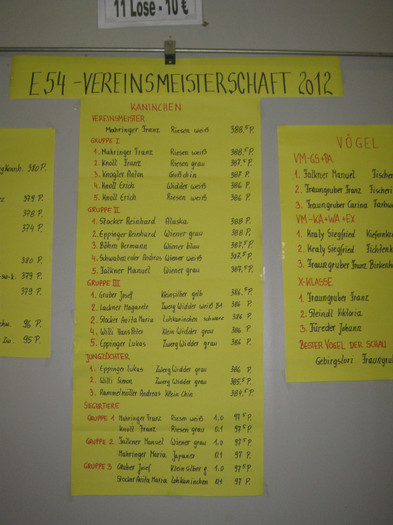 11 Lose - 10 €
E54 - VEREINSMEISTERSCHAFT 2012
KANINCHEN
VEREINSMEISTER
Mahringer Franz Riesen weiß 388.5 P.
GRUPPE I
1. Mahringer Franz Riesen weiß 388.5 P.
2. Knoll Franz Riesen grau 387.5 P.
3. Knogler Anton 387 P.
4. Knoll Erich Widder weiß 386 P.
5. Knoll Erich Riesen weiß 386 P.
GRUPPE II
1. Stocker Reinhard Alaska 388 P.
2. Eppinger Reinhard Wiener grau 388 P.
3. Böhm Hermann Wiener blau 387.5 P.
4. Andreas Wiener weiß 387.5 P.
5. Falkner Manuel Wiener grau 387.5 P.
GRUPPE III
1. Gruber Josef Kleinsilber gelb 386.5 P.
2. Lackner Margarete Zwerg Widder weiß BA 386 P.
3. Stocker Anita Maria Lohkaninchen schwarz 386 P.
4. Willi Hans Peter Klein Widder grau 386 P.
5. Eppinger Lukas Zwerg Widder grau 386 P.
JUNGZÜCHTER
1. Eppinger Lukas Zwerg Widder grau 386 P.
2. Willi Simon Zwerg Widder grau 385.5 P.
3. Rammelmüller Andreas Klein Chin 384.5 P.
SIEGERTIERE
GRUPPE 1 Mahringer Franz Riesen weiß 1.0 97.5 P.
Knoll Franz Riesen grau 0.1 97 P.
GRUPPE 2 Falkner Manuel Wiener grau 1.0 97.5 P.
Mahringer Maria Japaner 0.1 97 P.
GRUPPE 3 Gruber Josef Kleinsilber g. 1.0 97.5 P.
Stocker Anita Maria Lohkaninchen 0.1 97 P.
380 P.
379 P.
378 P.
374 P.
380 P.
379 P.
379 P.
96 P.
95 P.
VÖGEL
VM-GS+PA
1. Falkner Manuel
2. Traungruber Franz
3. Traungruber Carina
VM-KA+WA+EX
1. Kraly Siegfried
2. Kraly Siegfried
3. Traungruber Franz
X-KLASSE
1. Traungruber Franz
2. Steindl Viktoria
3. Füreder Johann
BESTER VOGEL DER SCHAU
Gebirgslori